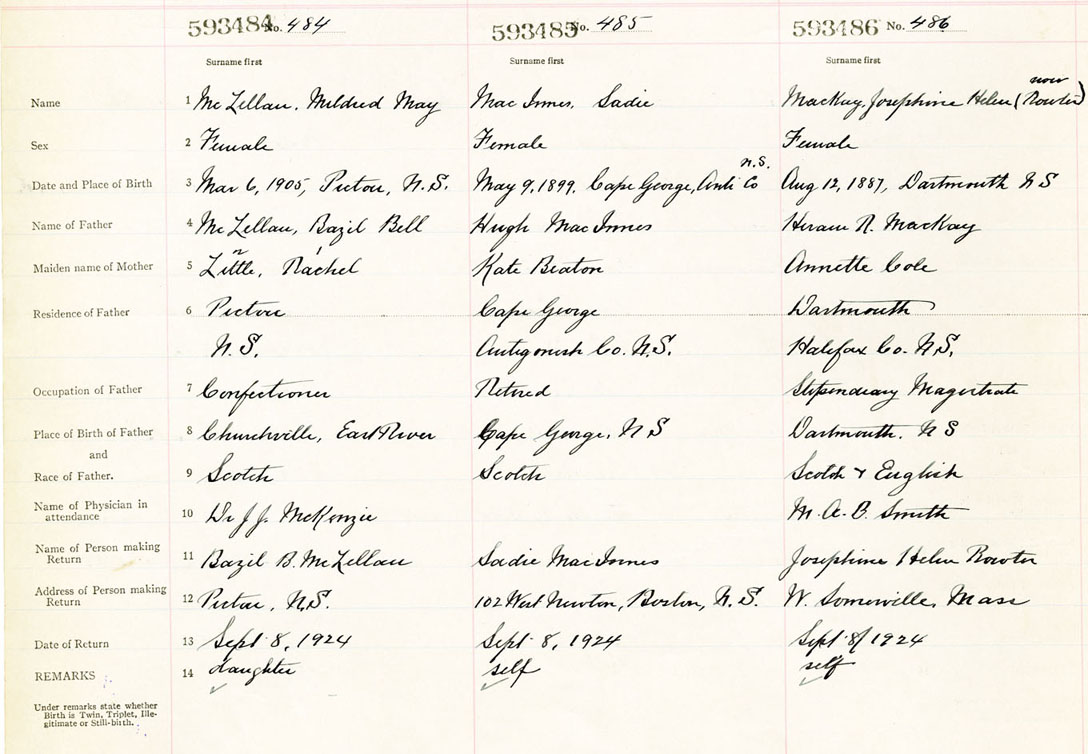 593484 No. 484 593485 No. 485 593486 No. 486
Surname first Surname first Surname first
now
Name 1 McLellan, Mildred May Mac Innes, Sadie MacKay, Josephine Helen (Rowter)
Sex 2 Female Female Female
N.S.
Date and Place of Birth 3 Mar 6, 1905, Pictou, N.S. May 9, 1899, Cape George, Anti Co Aug 12, 1887, Dartmouth N S
Name of Father 4 McLellan, Bazil Bell Hugh MacInnes Hiram R. MacKay
Maiden name of Mother 5 Little, Rachel Kate Beaton Annette Cole
Residence of Father 6 Pictou Cape George Dartmouth
N.S. Antigonish Co. N.S. Halifax Co. N.S.
Occupation of Father 7 Confectioner Retired Stipendiary Magistrate
Place of Birth of Father 8 Churchville, East River Cape George, N S Dartmouth, N S
and
Race of Father. 9 Scotch Scotch Scotch & English
Name of Physician in
attendance 10 Dr J.J. McKenzie M. A. B. Smith
Name of Person making
Return 11 Bazil B. McLellan Sadie MacInnes Josephine Helen Rowter
Address of Person making
Return 12 Pictou, N.S. 102 West Newton, Boston, N.S. W. Somerville, Mass
Date of Return 13 Sept 8, 1924 Sept 8, 1924 Sept 8/1924
REMARKS 14 daughter self self
Under remarks state whether
Birth is Twin, Triplet, Ille-
gitimate or Still-birth.